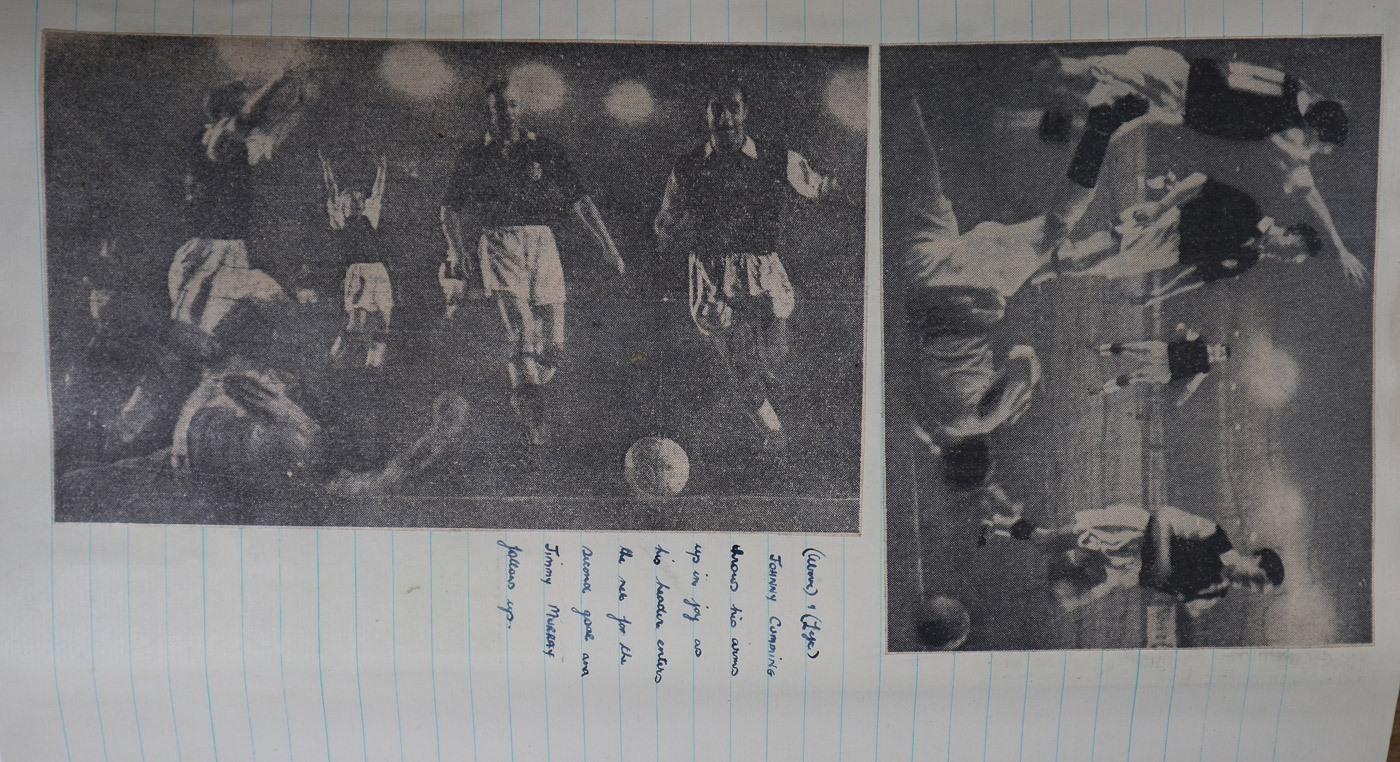 (Above) & (Left)
JOHNNY CUMMING
throws his arms
up in joy as
his header enters
the net for the
second goal and
Jimmy MURRAY
follows up.